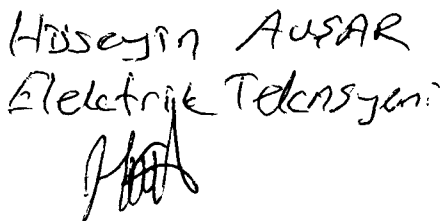 Hüseyin AVŞAR
Elektrik Teknsyeni